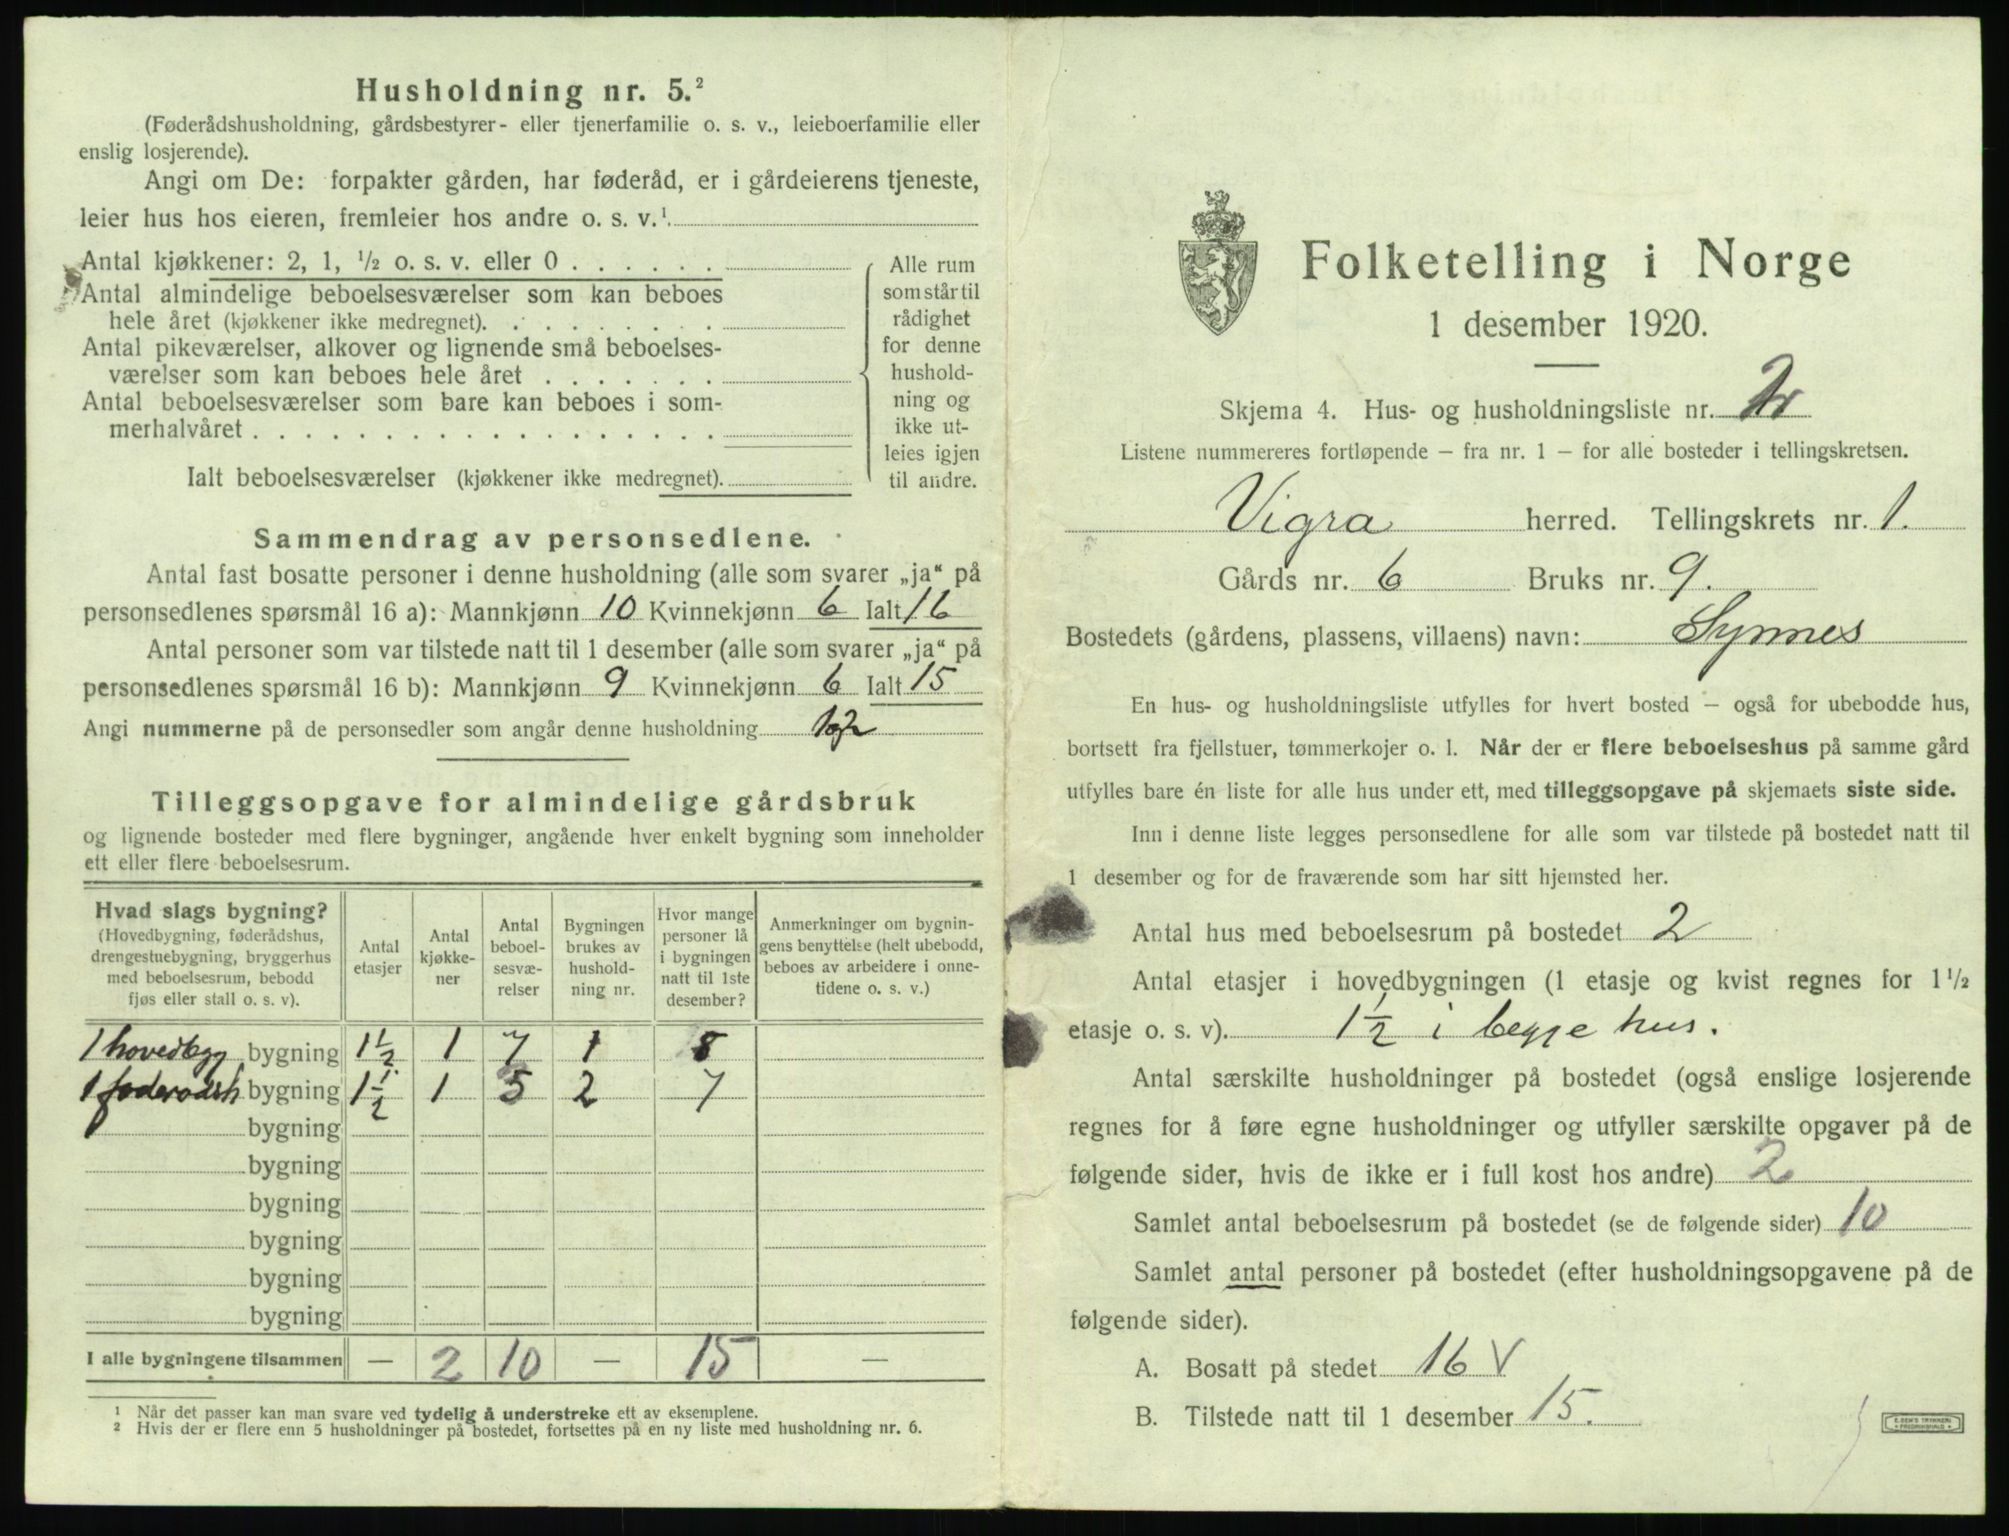 Husholdning nr. 5.²
(Føderådshusholdning, gårdsbestyrer- eller tjenerfamilie o. s. v., leieboerfamilie eller
enslig losjerende).
Angi om De: forpakter gården, har føderåd, er i gårdeierens tjeneste,
leier hus hos eieren, fremleier hos andre o. s. v.¹
Antal kjøkkener: 2, 1, ½ o. s. v. eller 0 . . . . . .
Antal almindelige beboelsesværelser som kan beboes
hele året (kjøkkener ikke medregnet). . . . . . . . .
Antal pikeværelser, alkover og lignende små beboelses-
værelser som kan beboes hele året . . . . . . .
Antal beboelsesværelser som bare kan beboes i som-
merhalvåret . . . . . . . . . . . . . . . . . .
Ialt beboelsesværelser (kjøkkener ikke medregnet).
Alle rum
som står til
rådighet
for denne
hushold-
ning og
ikke ut-
leies igjen
til andre.
Sammendrag av personsedlene.
Antal fast bosatte personer i denne husholdning (alle som svarer „ja“ på
personsedlenes spørsmål 16 a): Mannkjønn 10 Kvinnekjønn 6 Ialt 16
Antal personer som var tilstede natt til 1 desember (alle som svarer „ja“ på
personsedlenes spørsmål 16 b): Mannkjønn 9 Kvinnekjønn 6 Ialt 15
Angi nummerne på de personsedler som angår denne husholdning
Tilleggsopgave for almindelige gårdsbruk
og lignende bosteder med flere bygninger, angående hver enkelt bygning som inneholder
ett eller flere beboelsesrum.
Hvad slags bygning?
(Hovedbygning, føderådshus,
drengestuebygning, bryggerhus
med beboelsesrum, bebodd
fjøs eller stall o. s. v).
Antal
etasjer
Antal
kjøkke-
ner
Antal
beboel-
sesvæ-
relser
Bygningen
brukes av
hushold-
ning nr.
Hvor mange
personer lå
i bygningen
natt til 1ste
desember?
Anmerkninger om bygnin-
gens benyttelse (helt ubebodd,
beboes av arbeidere i onne-
tidene o. s. v.)
1 hovedbyg bygning 1½ 1 7 1 8
1 føderådsh bygning 1½ 1 5 2 7
bygning
bygning
bygning
bygning
bygning
bygning
I alle bygningene tilsammen — 2 10 — 15 —
¹ Når det passer kan man svare ved tydelig å understreke ett av eksemplene.
² Hvis der er flere enn 5 husholdninger på bostedet, fortsettes på en ny liste med husholdning nr. 6.
Folketelling i Norge
1 desember 1920.
Skjema 4. Hus- og husholdningsliste nr. 2
Listene nummereres fortløpende — fra nr. 1 — for alle bosteder i tellingskretsen.
Vigra herred. Tellingskrets nr. 1.
Gårds nr. 6 Bruks nr. 9.
Bostedets (gårdens, plassens, villaens) navn: Synnes
En hus- og husholdningsliste utfylles for hvert bosted — også for ubebodde hus,
bortsett fra fjellstuer, tømmerkojer o. l. Når der er flere beboelseshus på samme gård
utfylles bare én liste for alle hus under ett, med tilleggsopgave på skjemaets siste side.
Inn i denne liste legges personsedlene for alle som var tilstede på bostedet natt til
1 desember og for de fraværende som har sitt hjemsted her.
Antal hus med beboelsesrum på bostedet 2
Antal etasjer i hovedbygningen (1 etasje og kvist regnes for 1½
etasje o. s. v). 1½ i begge hus.
Antal særskilte husholdninger på bostedet (også enslige losjerende
regnes for å føre egne husholdninger og utfyller særskilte opgaver på de
følgende sider, hvis de ikke er i full kost hos andre) 2
Samlet antal beboelsesrum på bostedet (se de følgende sider) 10
Samlet antal personer på bostedet (efter husholdningsopgavene på de
følgende sider).
A. Bosatt på stedet 16 V
B. Tilstede natt til 1 desember 15.
E. SEM'S TRYKKERI
FREDRIKSHALD